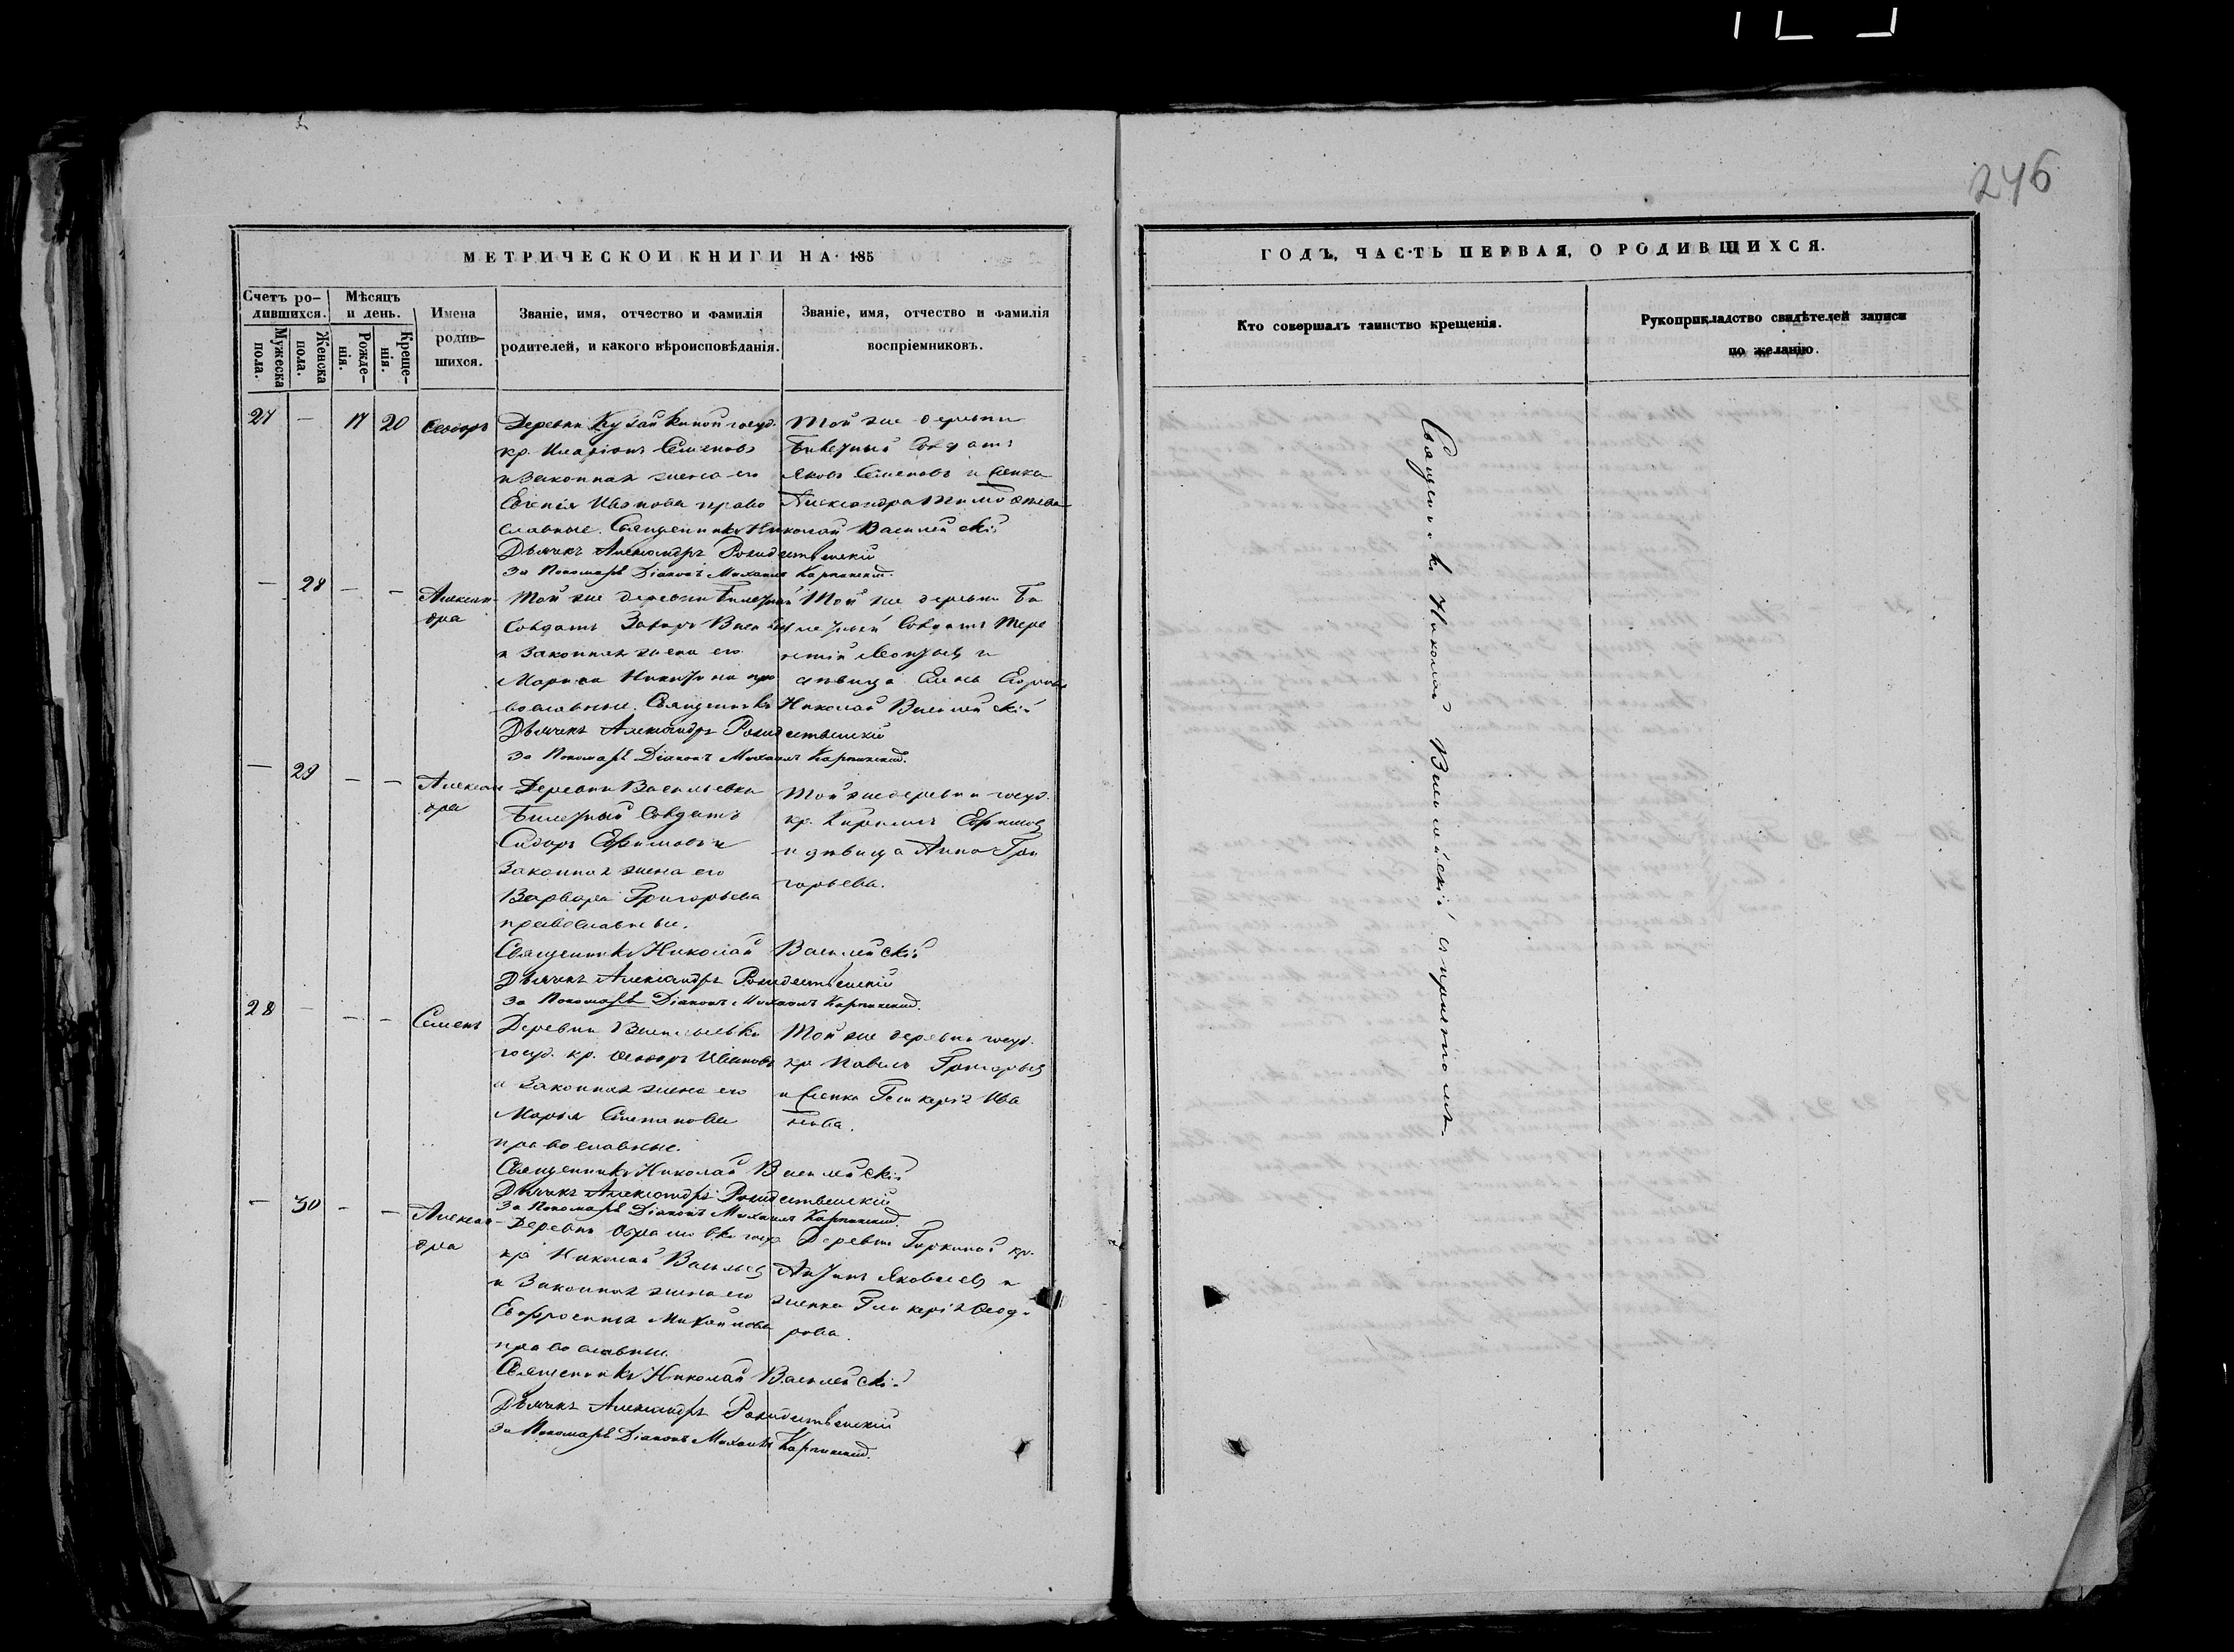 246
МЕТРИЧЕСКОЙ КНИГИ НА 185
ГОДЪ, ЧАСТЬ ПЕРВАЯ, О РОДИВШИХСЯ.
Счетъ ро-
дившихся.
Мужеска
пола.
Женска
пола.
Мѣсяцъ
и день.
Рожде-
нія.
Креще-
нія.
Имена
родив-
шихся.
Званіе, имя, отчество и фамилія
родителей, и какого вѣроисповѣданія.
Званіе, имя, отчество и фамилія
воспріемниковъ.
Кто совершалъ таинство крещенія.
Рукоприкладство свидѣтелей записи
по желанію.
27 — 17 20 Ѳеодоръ
Деревни
кр. Иларіонъ Семеновъ
и законная жена его
Иванова право
славные. Священникъ Николай
Дьячекъ Александръ Рождественскій
За Пономаря Діаконъ Михаилъ Карпинскій.
Той же деревни
Билетный Солдатъ
Яковъ Семеновъ и женка
Александра Тимоѳеева
— 28 — — Алексан-
дра
Той же деревни Билетный
Солдатъ Захаръ
и законная жена его
Марина Никитина пра
вославные. Священникъ Николай
Дьячекъ Александръ Рождественскій
За Пономаря Діаконъ Михаилъ Карпинскій.
Той же деревни Би
летный Солдатъ Тере
нтій Леонтьевъ и
дѣвица Елена Егорова
— 29 — — Алексан
дра
Деревни Васильевки
Билетный Солдатъ
Сидоръ Ефимовъ и
законная жена его
Варвара Григорьева
православные.
Священникъ Николай
Дьячекъ Александръ Рождественскій
За Пономаря Діаконъ Михаилъ Карпинскій.
Той же деревни госуд.
кр. Кирилъ Ефимовъ
и дѣвица Анна Гри
горьева.
28 — — — Семенъ
Деревни Васильевки
госуд. кр. Ѳеодоръ Ивановъ
и законная жена его
Марья Степанова
православные.
Священникъ Николай
Дьячекъ Александръ Рождественскій
За Пономаря Діаконъ Михаилъ Карпинскій.
Той же деревни госуд.
кр Павелъ Григорьевъ
и женка Гликерія Ива
нова.
— 30 — — Алексан
дра
Деревни госуд
кр Николай Васильевъ
и законная жена его
Евфросинія Михайлова
православные.
Священникъ Николай
Дьячекъ Александръ Рождественскій
За Пономаря Діаконъ Михаилъ Карпинскій.
Деревни кр.
Антипъ Яковлевъ и
женка Гликерія Ѳеодо
рова.
Священникъ Николай съ причтомъ.